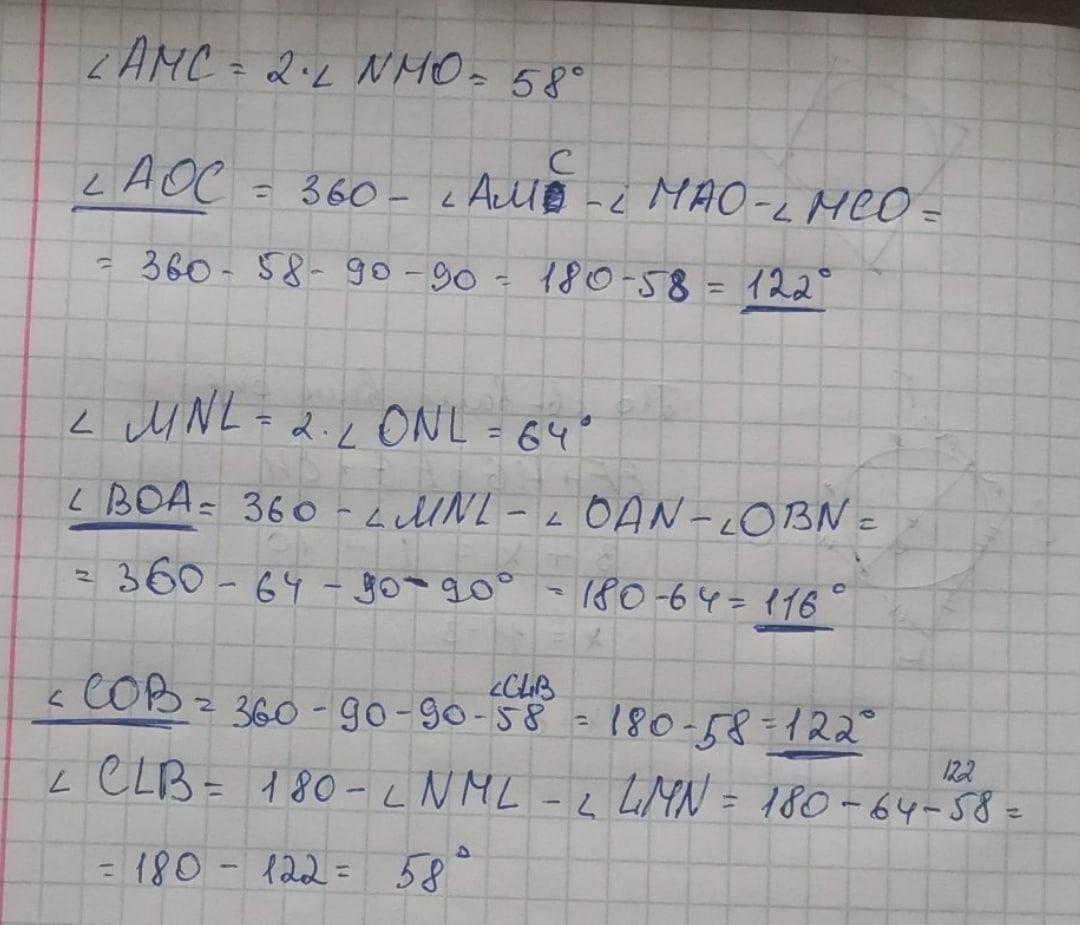 ∠AMC = 2·∠ NMO = 58°
∠AOC = 360 - ∠AMC - ∠ MAO - ∠MCO =
= 360 - 58 - 90 - 90 = 180 - 58 = 122°
∠ MNL = 2·∠ ONL = 64°
∠BOA = 360 - ∠MNL - ∠ OAN - ∠OBN =
= 360 - 64 - 90 - 90° = 180 - 64 = 116°
∠CLB
∠COB = 360 - 90 - 90 - 58 = 180 - 58 = 122°
122
∠ CLB = 180 - ∠NML - ∠ LMN = 180 - 64 - 58 =
= 180 - 122 = 58°